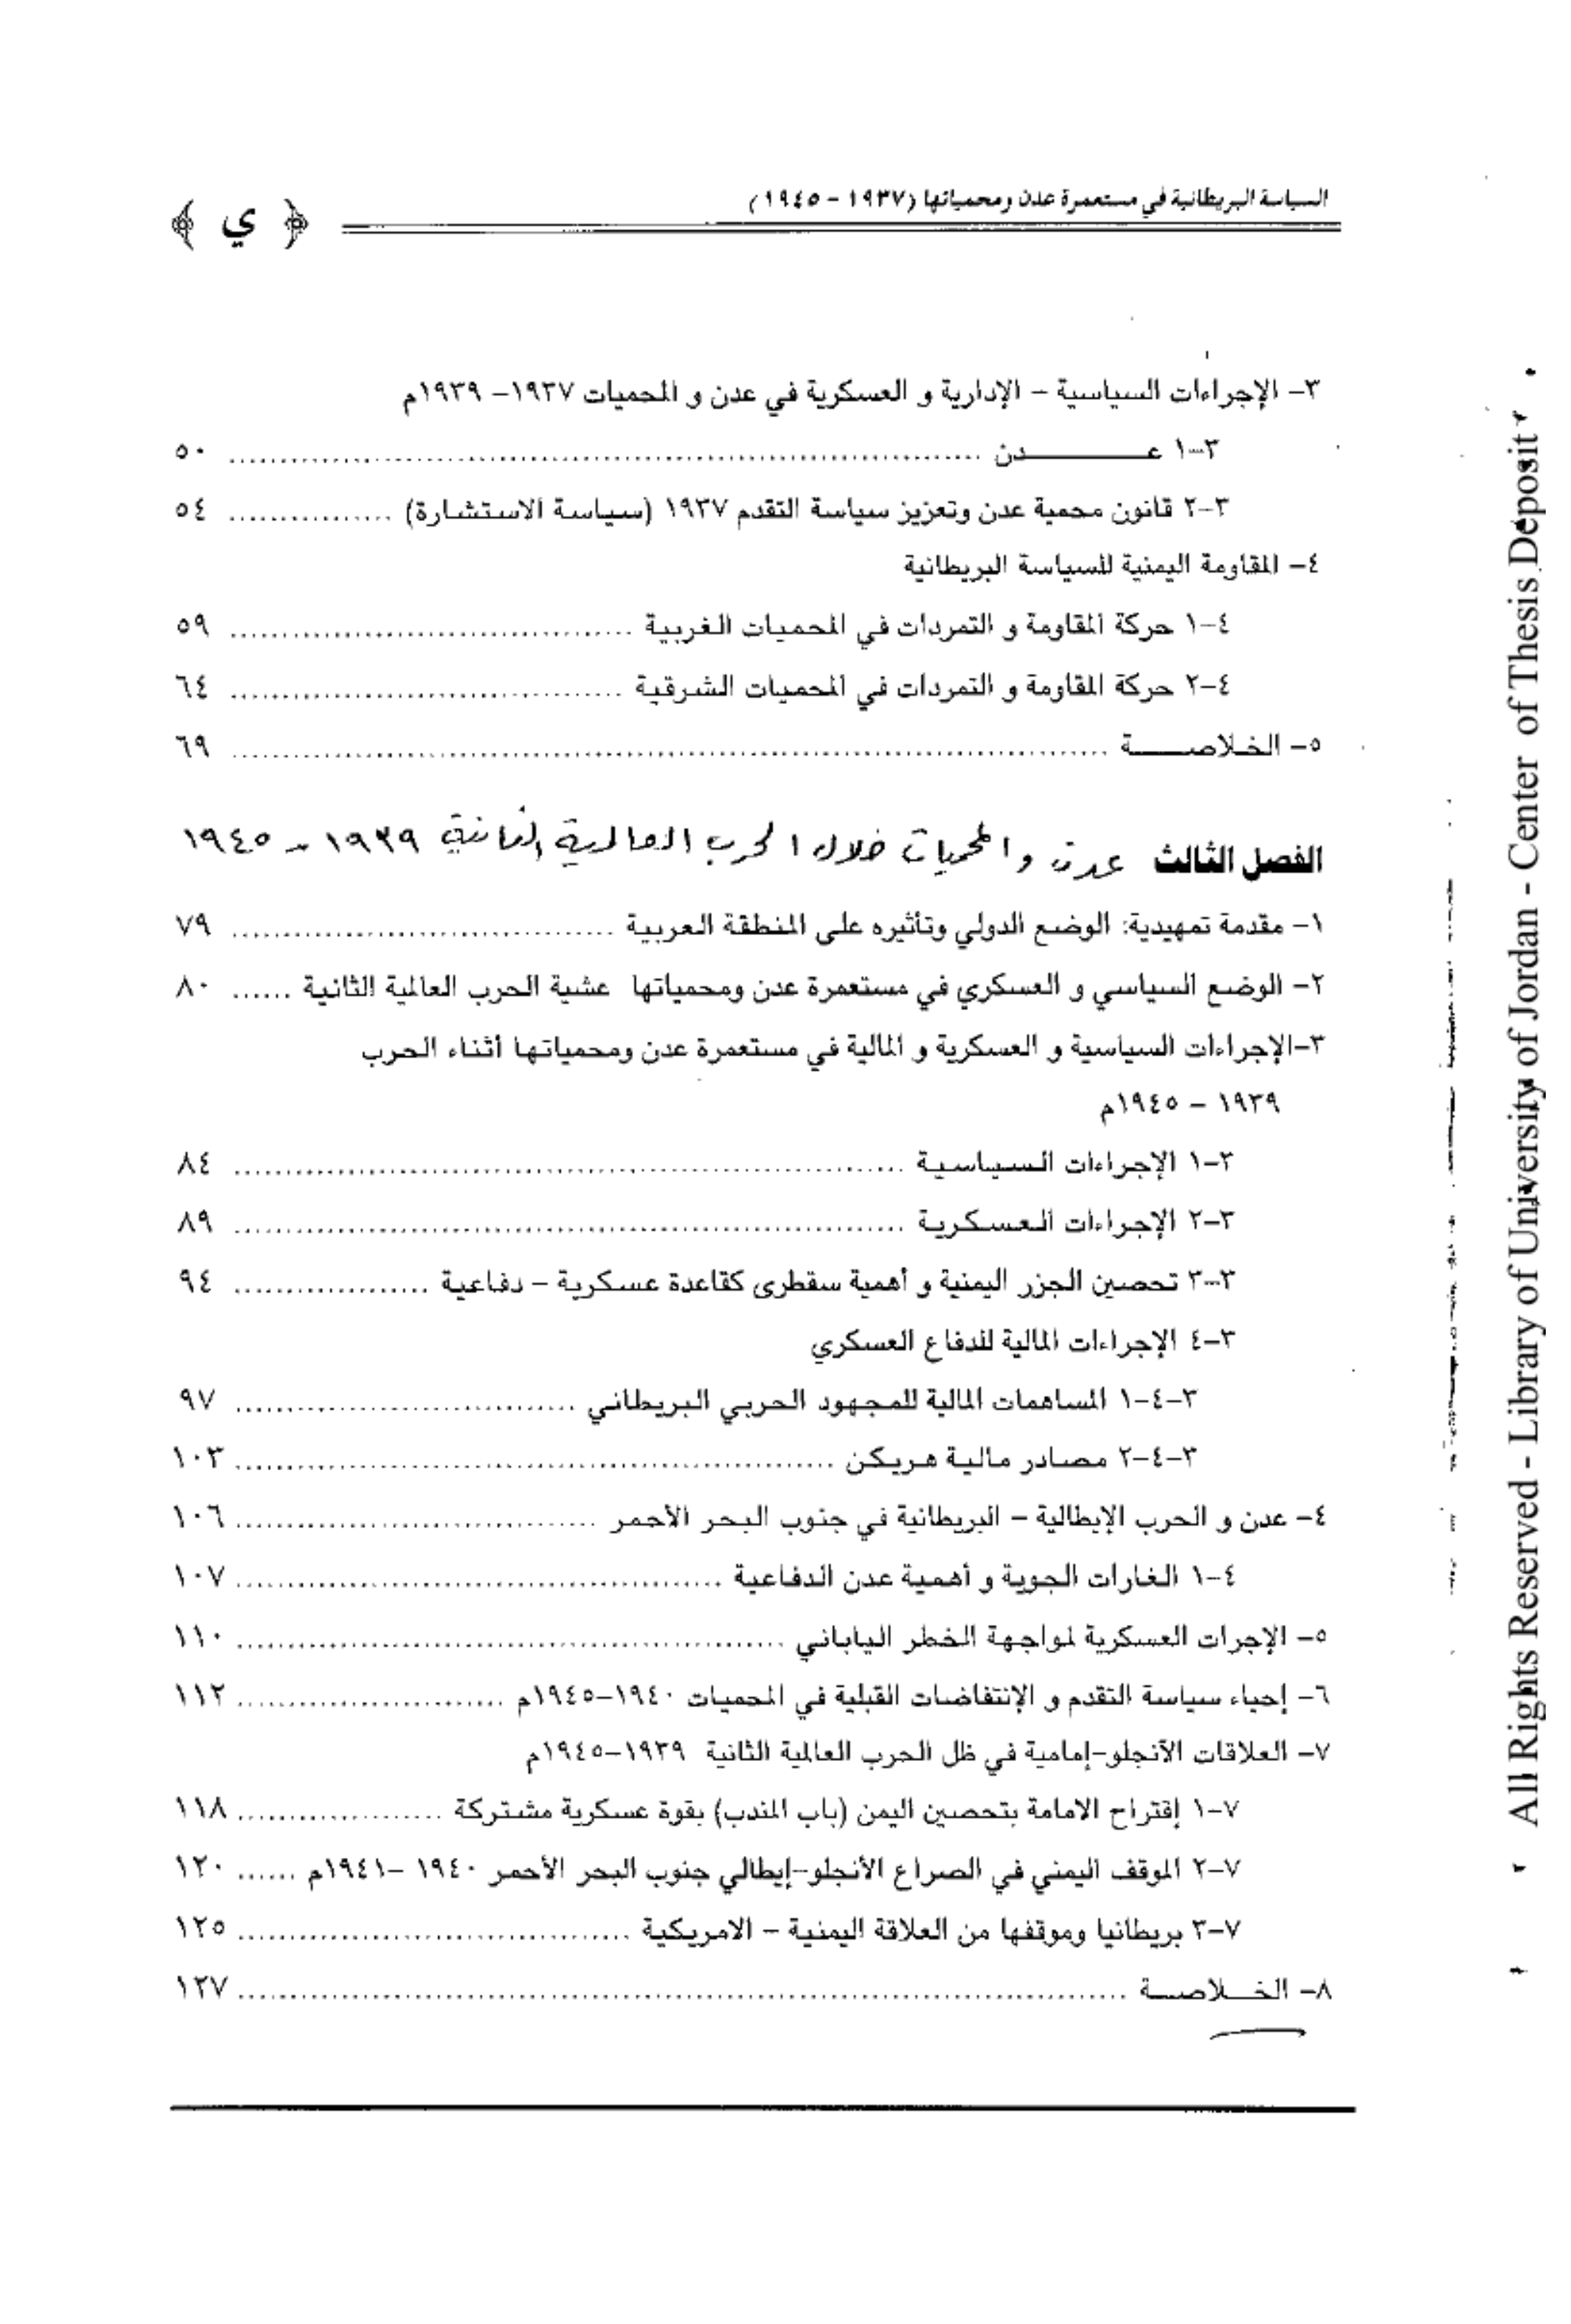 السياسة البريطانية في مستعمرة عدن ومحمياتها (١٩٣٧ - ١٩٤٥)
﴿ ي ﴾
٣- الإجراءات السياسية - الإدارية و العسكرية في عدن و المحميات ١٩٣٧- ١٩٣٩م
٣-١ عـــــــــدن ........................................ ٥٠
٣-٢ قانون محمية عدن وتعزيز سياسة التقدم ١٩٣٧ (سياسة الاستشارة) ................ ٥٤
٤- المقاومة اليمنية للسياسة البريطانية
٤-١ حركة المقاومة و التمردات في المحميات الغربية ........................................ ٥٩
٤-٢ حركة المقاومة و التمردات في المحميات الشرقية ........................................ ٦٤
٥- الخلاصـــــة ........................................ ٦٩
الفصل الثالث عدن والمحميات خلال الحرب العالمية الثانية ١٩٣٩ - ١٩٤٥
١- مقدمة تمهيدية: الوضع الدولي وتأثيره على المنطقة العربية ........................................ ٧٩
٢- الوضع السياسي و العسكري في مستعمرة عدن ومحمياتها عشية الحرب العالمية الثانية ...... ٨٠
٣-الإجراءات السياسية و العسكرية و المالية في مستعمرة عدن ومحمياتها أثناء الحرب
١٩٣٩ - ١٩٤٥م
٣-١ الإجراءات السياسية ........................................ ٨٤
٣-٢ الإجراءات العسكرية ........................................ ٨٩
٣-٣ تحصين الجزر اليمنية و أهمية سقطرى كقاعدة عسكرية - دفاعية ................... ٩٤
٣-٤ الإجراءات المالية للدفاع العسكري
٣-٤-١ المساهمات المالية للمجهود الحربي البريطاني ................................. ٩٧
٣-٤-٢ مصادر مالية هريكن ........................................ ١٠٣
٤- عدن و الحرب الإيطالية - البريطانية في جنوب البحر الأحمر ................................... ١٠٦
٤-١ الغارات الجوية و أهمية عدن الدفاعية ........................................ ١٠٧
٥- الإجرات العسكرية لمواجهة الخطر الياباني ........................................ ١١٠
٦- إحياء سياسة التقدم و الإنتفاضات القبلية في المحميات ١٩٤٠-١٩٤٥م .......................... ١١٢
٧- العلاقات الآنجلو-إمامية في ظل الحرب العالمية الثانية ١٩٣٩-١٩٤٥م
٧-١ إقتراح الامامة بتحصين اليمن (باب المندب) بقوة عسكرية مشتركة .................... ١١٨
٧-٢ الموقف اليمني في الصراع الأنجلو-إيطالي جنوب البحر الأحمر ١٩٤٠ -١٩٤١م ...... ١٢٠
٧-٣ بريطانيا وموقفها من العلاقة اليمنية - الامريكية ...................................... ١٢٥
٨- الخـــلاصـــة ........................................ ١٢٧
All Rights Reserved - Library of University of Jordan - Center of Thesis Deposit